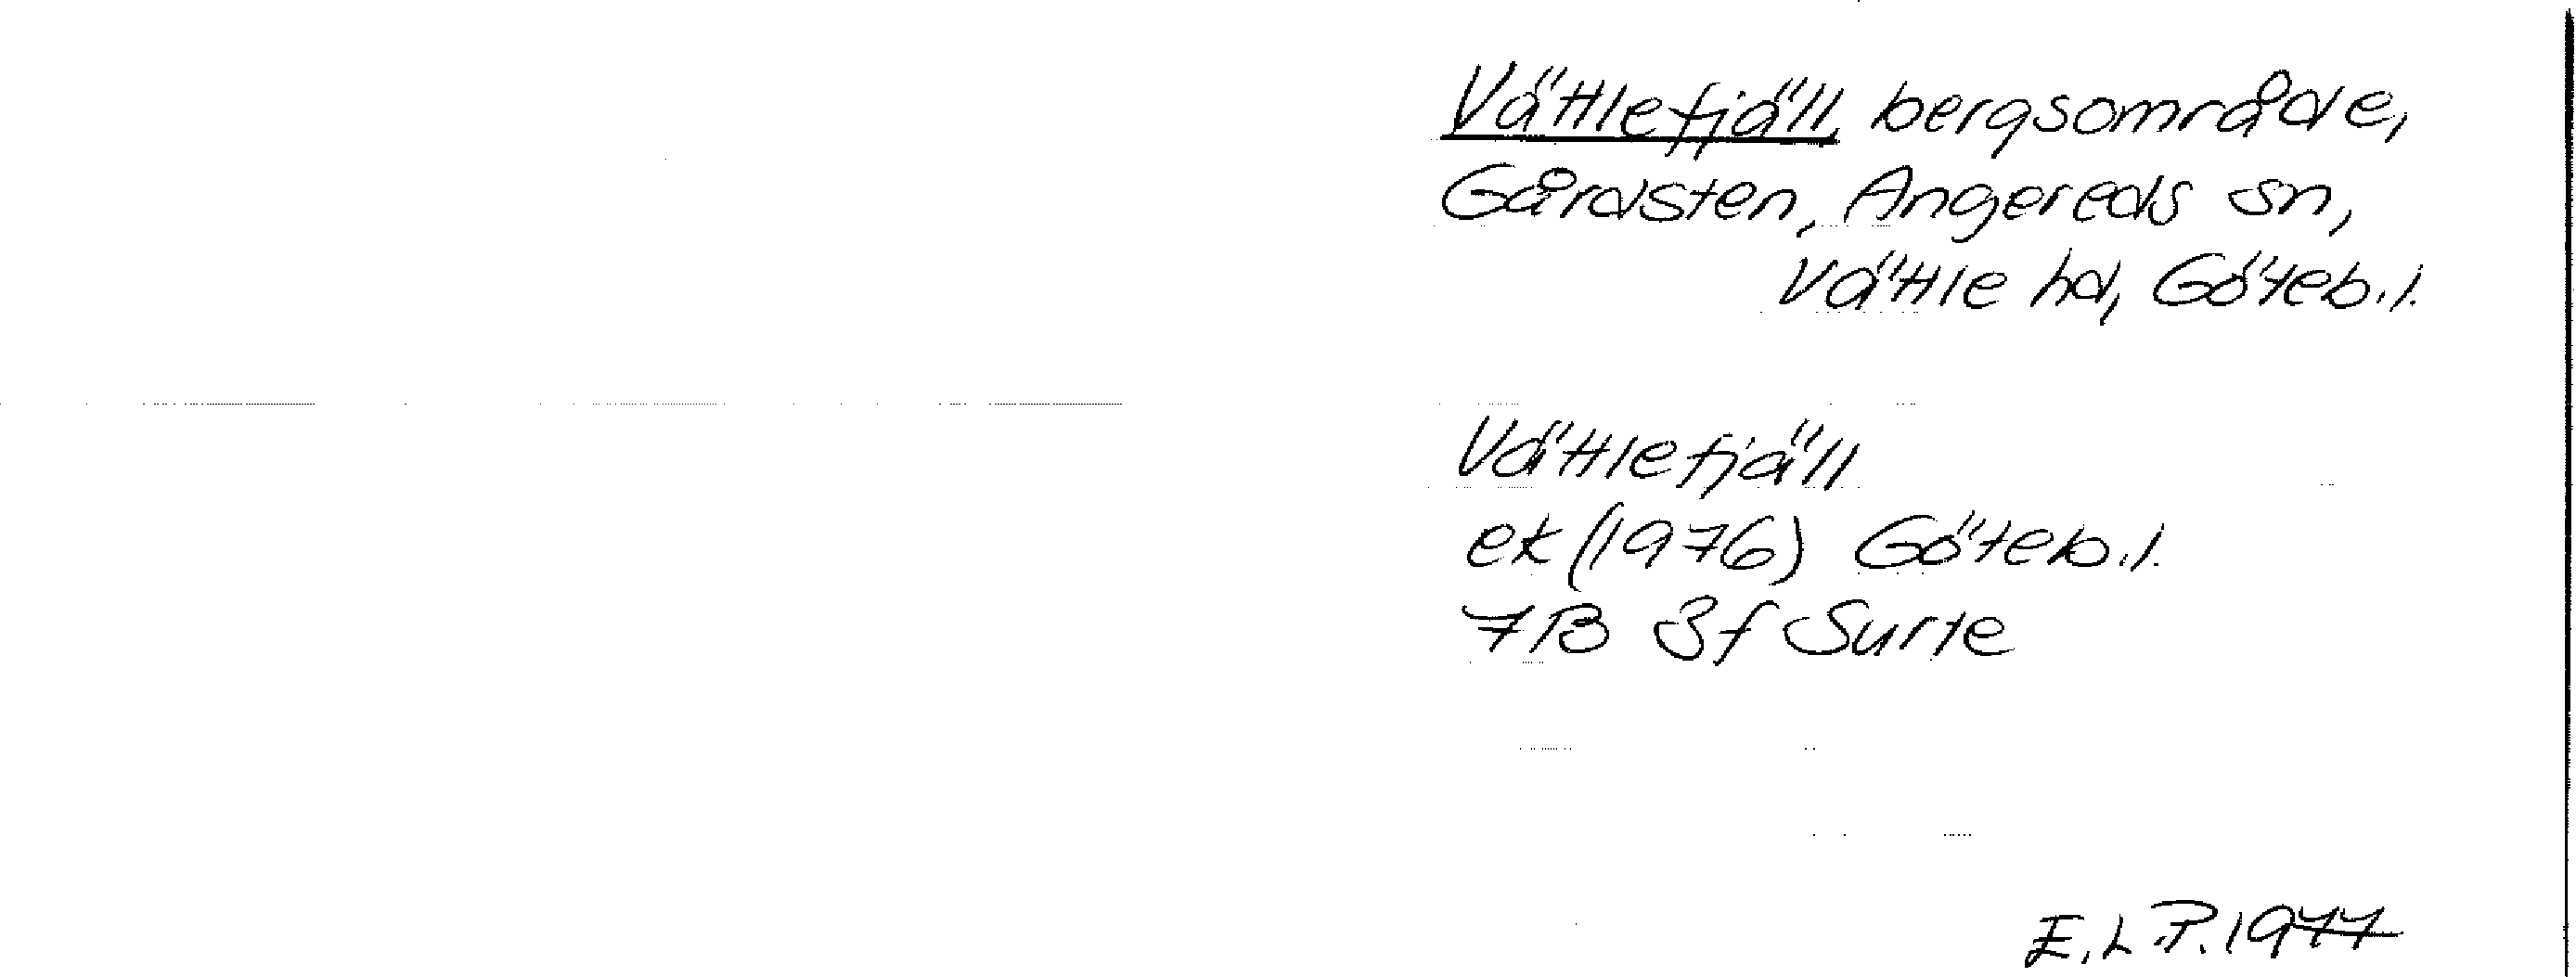 Vättlefjäll, bergsområde,
Gårdsten, Angereds sn,
Vättle hd, Göteb.l.
Vättlefjäll
ek (1976) Göteb.l.
7B 3f Surte
E.L.P. 1977